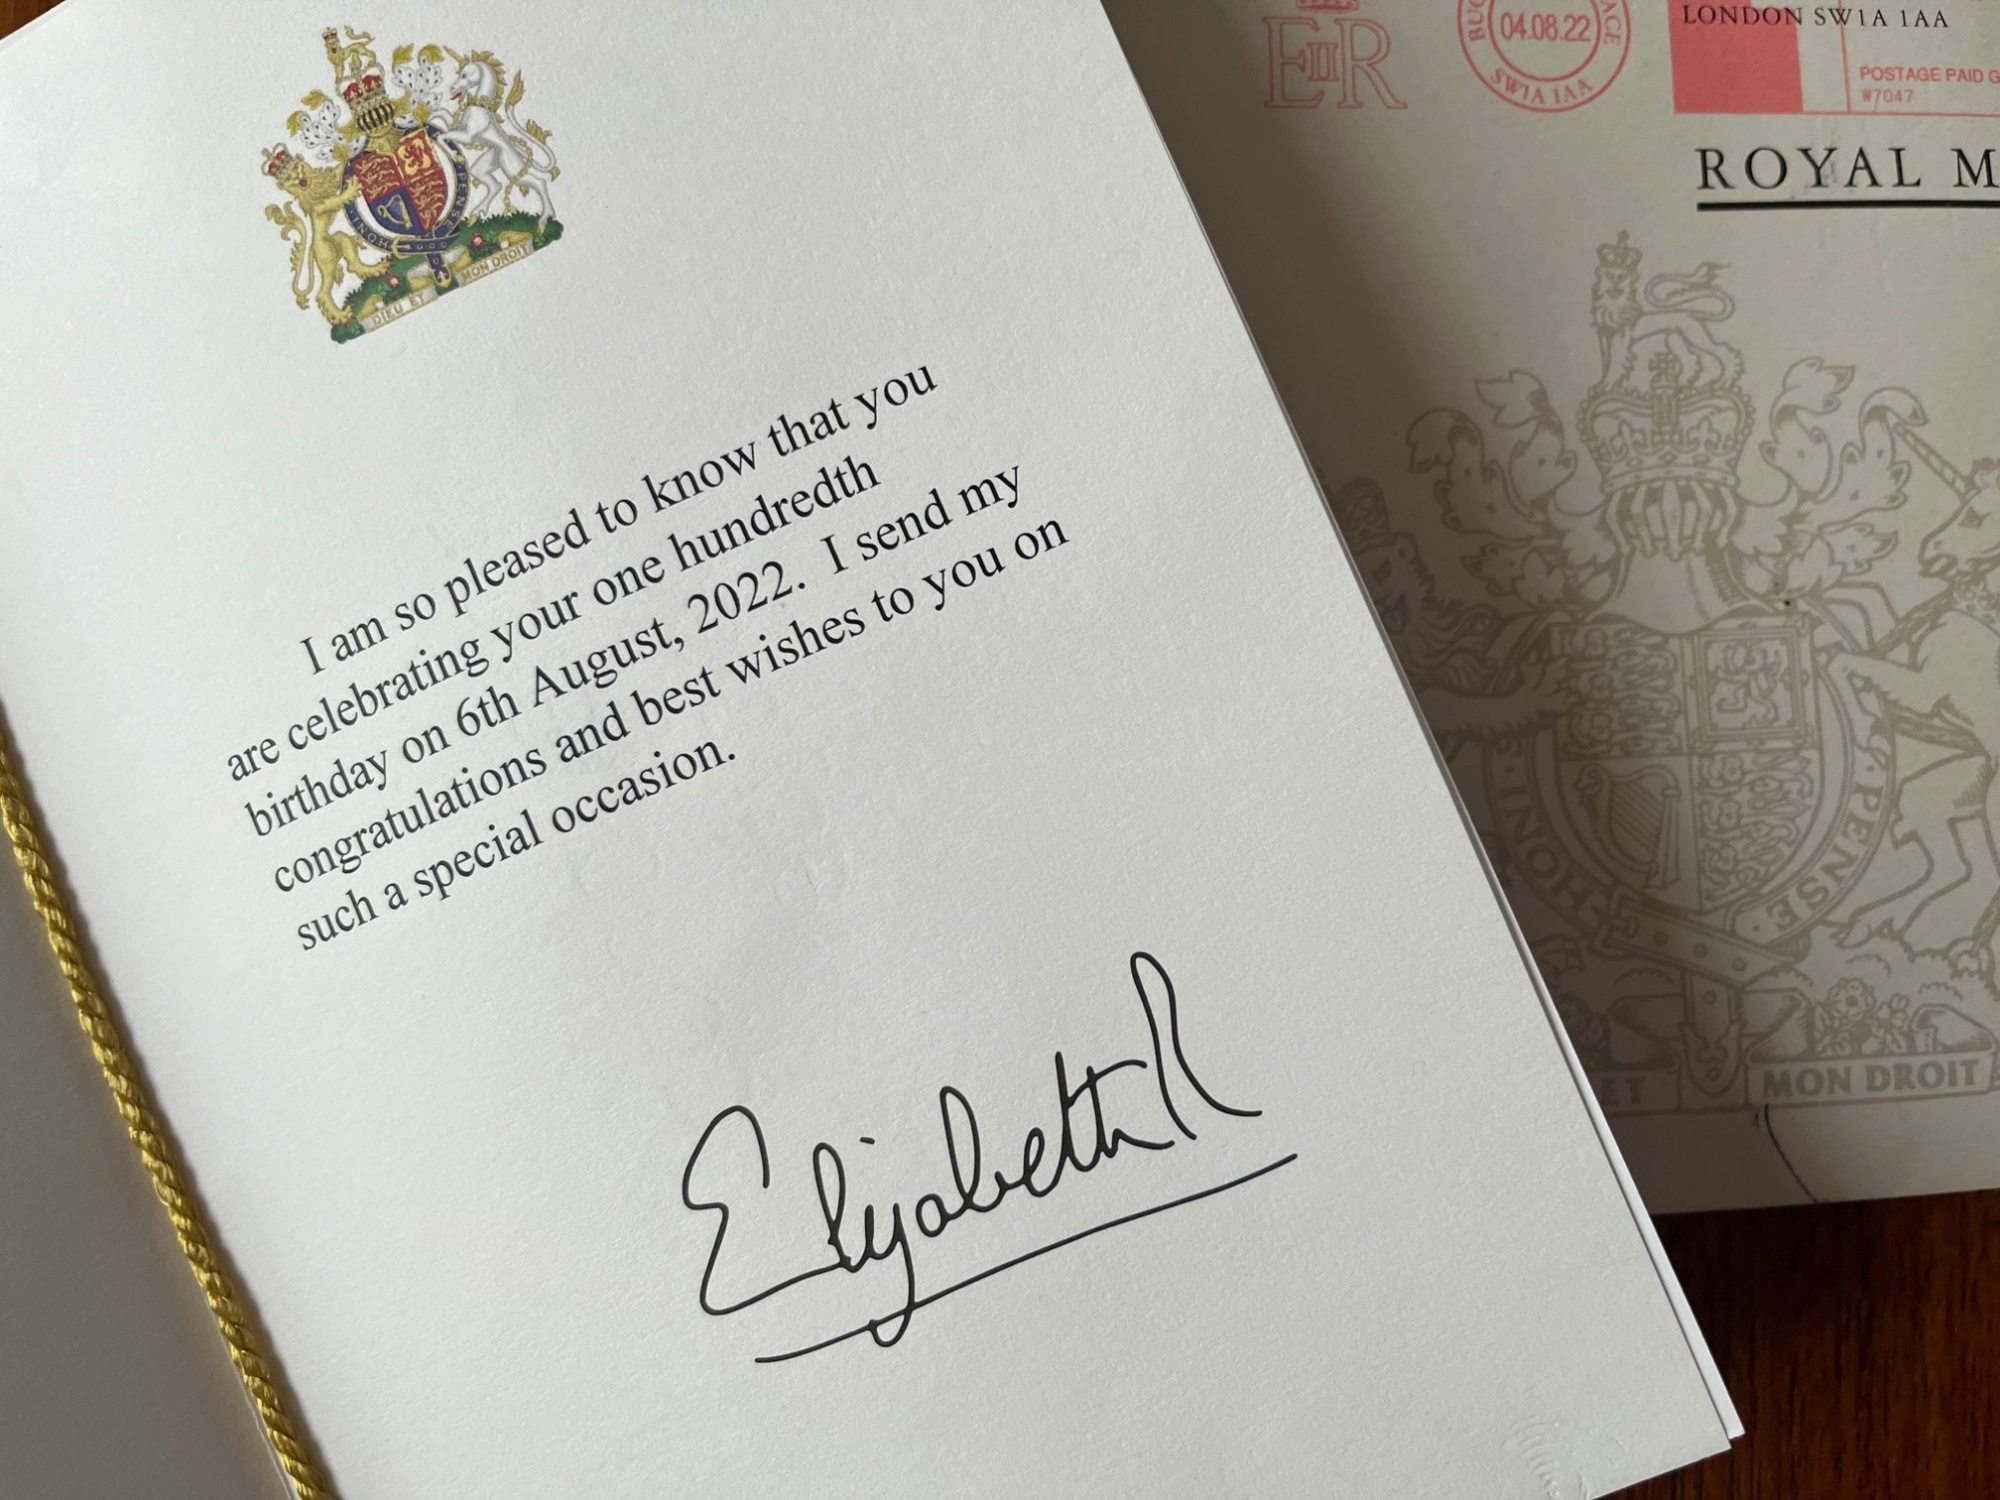 HONI
PENSE
DIEU ET
MON DROIT
I am so pleased to know that you
are celebrating your one hundredth
birthday on 6th August, 2022. I send my
congratulations and best wishes to you on
such a special occasion.
Elizabeth R
EIIR
04.08.22
SW1A 1AA
LONDON SW1A 1AA
POSTAGE PAID G
W7047
ROYAL M
HONI
PENSE
ET
MON DROIT